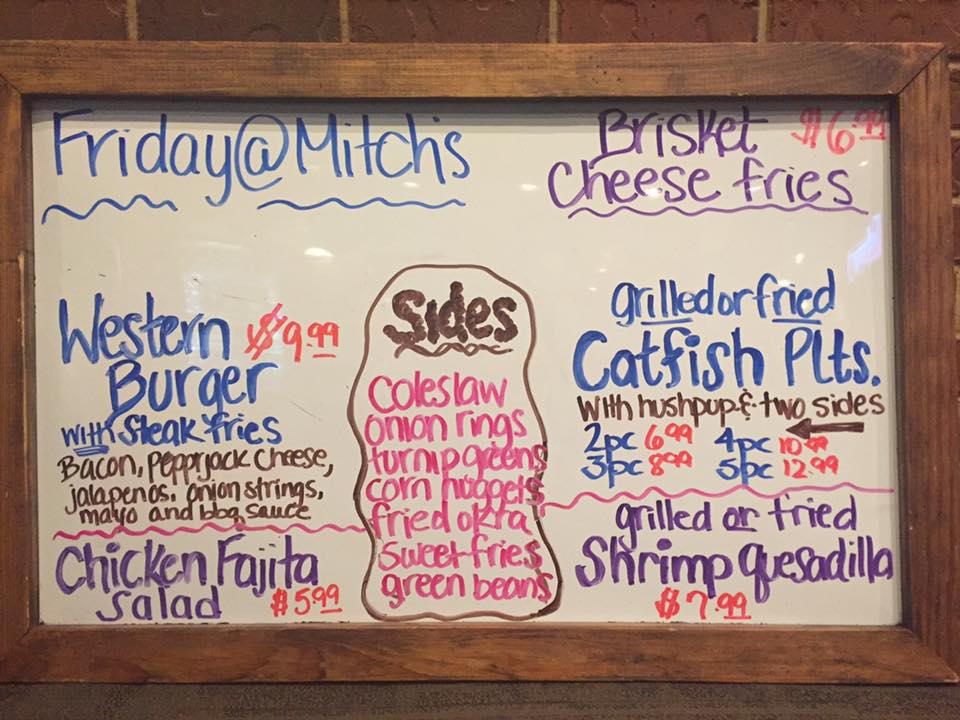 Friday@Mitch's
Brisket $6.99
Cheese fries
Western $9.99
Burger
with steak fries
Bacon, Pepprjack Cheese,
jalapenos, onion strings,
mayo and bbq sauce
Chicken Fajita
salad $5.99
Sides
coleslaw
onion rings
turnip greens
corn nuggets
fried okra
sweet fries
green beans
grilled or fried
Catfish Plts.
with hushpup & two sides
2pc 6.99 4pc 10.99
3pc 8.99 5pc 12.99
grilled or fried
Shrimp Quesadilla
$7.99